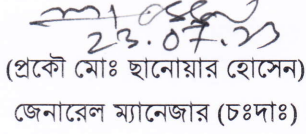 23.07.23
(প্রকৌ মোঃ ছানোয়ার হোসেন)
জেনারেল ম্যানেজার (চঃদাঃ)